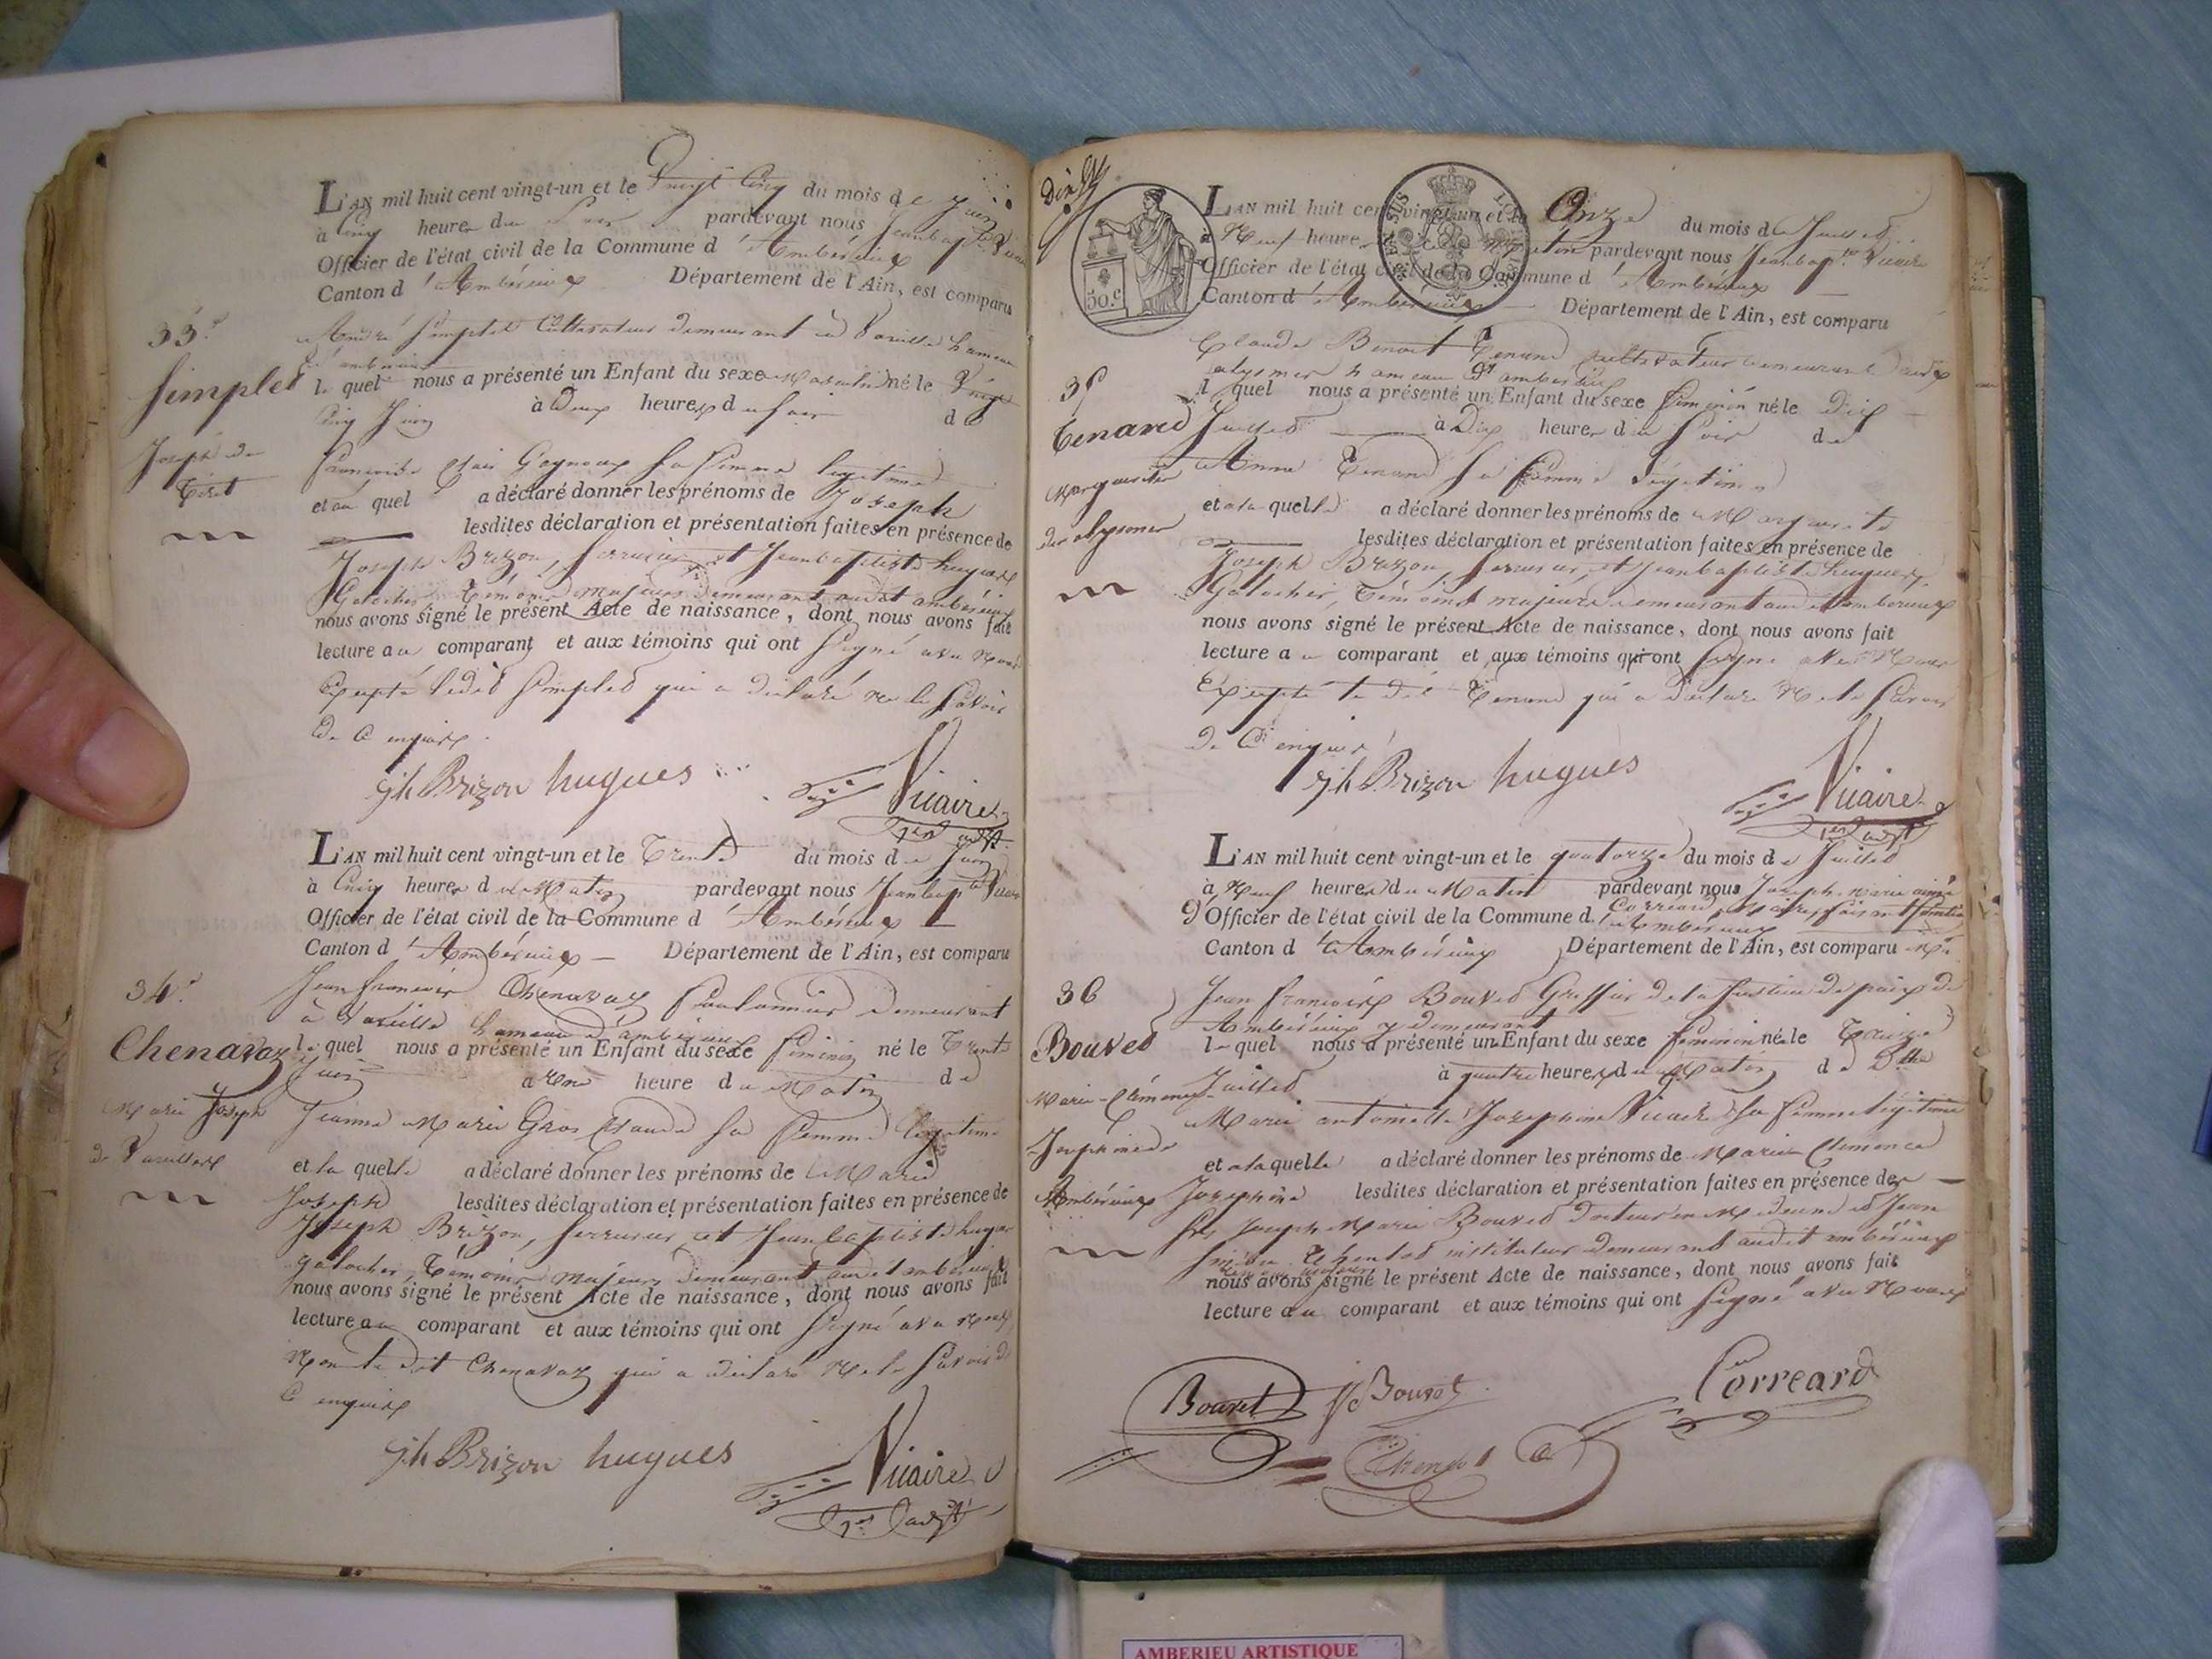 L'AN mil huit cent vingt-un et le Vingt Cinq du mois de Juin
à Cinq heures du Soir pardevant nous Jeanbapte Vicaire
Officier de l'état civil de la Commune d'Ambérieux
Canton d'Ambérieux Département de l'Ain, est comparu
33e
André Simplet Cultivateur demeurant à Vareille hameau
d'ambérieux
Simplet
le quel nous a présenté un Enfant du sexe Masculin né le Vingt
Cinq Juin à Deux heures du Soir de
Joseph de
Tiret
Françoise sa femme legitime
et au quel a déclaré donner les prénoms de Joseph
lesdites déclaration et présentation faites en présence de
Joseph Brizon, Serrurier et Jeanbaptiste hugues
Galocher, Témoins majeurs demeurant audit ambérieux
nous avons signé le présent Acte de naissance, dont nous avons fait
lecture au comparant et aux témoins qui ont Signé avec Nous
Excepté ledit Simplet qui a déclaré ne le Savoir
de Ce enquis
jh Brizon hugues Vicaire
1er adjt
L'AN mil huit cent vingt-un et le Trente du mois de Juin
à Cinq heures du Matin pardevant nous Jeanbapte Vicaire
Officier de l'état civil de la Commune d'Ambérieux
Canton d'Ambérieux Département de l'Ain, est comparu
34e
Jean françois Chenavaz demeurant
à Vareille hameau d'ambérieux
Chenavaz
le quel nous a présenté un Enfant du sexe féminin né le Trente
Juin à Une heure du Matin de
Marie Joseph
Jeanne Marie Gros Claude sa femme légitime
de Vareilles
et la quelle a déclaré donner les prénoms de Marie
Joseph lesdites déclaration et présentation faites en présence de
Joseph Brizon, Serrurier, et Jeanbaptiste hugues
galocher, Témoins majeurs demeurant audit ambérieux
nous avons signé le présent Acte de naissance, dont nous avons fait
lecture au comparant et aux témoins qui ont Signé avec nous
Non le dit Chenavaz qui a déclaré Ne le Savoir de
Ce enquis
jh Brizon hugues Vicaire
1er adjt
50.c
L'AN mil huit cent vingt-un et le Onze du mois de Juillet
à Neuf heures du Matin pardevant nous Jeanbapte Vicaire
Officier de l'état civil de la Commune d'Ambérieux
Canton d'Ambérieux Département de l'Ain, est comparu
35
Claude Benoit Tenand Cultivateur demeurant aux
alysmes hameau d'ambérieux
Tenand
le quel nous a présenté un Enfant du sexe féminin né le Dix
Juillet à Dix heures du Soir de
Marguerite
Anne Tenand sa femme légitime
des alysmes
et a la quelle a déclaré donner les prénoms de Marguerite
lesdites déclaration et présentation faites en présence de
Joseph Brizon, Serrurier, et Jeanbaptiste hugues
Galocher, Témoins majeurs demeurant audit ambérieux
nous avons signé le présent Acte de naissance, dont nous avons fait
lecture au comparant et aux témoins qui ont Signé avec Nous
Excepté le dit Tenand qui a déclaré Ne le Savoir
de Ce enquis
jh Brizon hugues Vicaire
1er adjt
L'AN mil huit cent vingt-un et le quatorze du mois de Juillet
à Neuf heures du Matin pardevant nous Joseph marie aimé
Correard, Maire, faisant fonction
d'Officier de l'état civil de la Commune d'Ambérieux
Canton d'Ambérieux Département de l'Ain, est comparu Mr
36
Jean françois Bouvet Greffier de la Justice de paix de
Ambérieux y demeurant
Bouvet
le quel nous a présenté un Enfant du sexe féminin né le Treize
Juillet à quatre heures du Matin de Dme
Marie-Clémence
Josephine de
Ambérieux
Marie antoinette Josephine Vicaire sa femme légitime
et a la quelle a déclaré donner les prénoms de Marie Clémence
Josephine lesdites déclaration et présentation faites en présence de
Joseph Marie Bouvet docteur en Médecine et Jean
instituteur demeurant audit ambérieux
nous avons signé le présent Acte de naissance, dont nous avons fait
lecture au comparant et aux témoins qui ont Signé avec Nous
Bouvet Bouvet Correard
AMBERIEU ARTISTIQUE